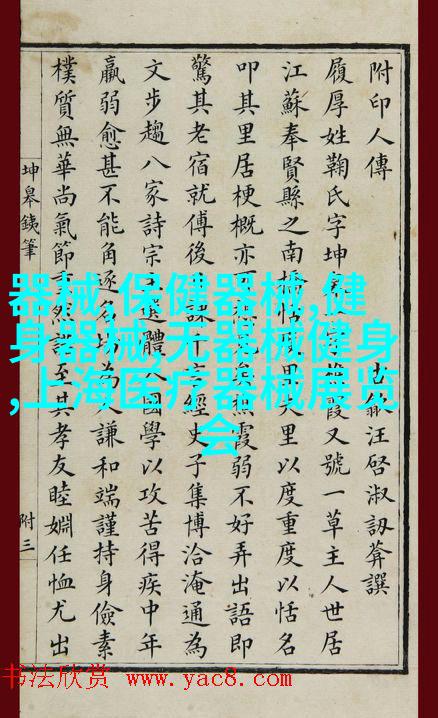 附印人傳
汪啓淑訒葊譔
履厚姓鞠氏字坤霞又號一草主人世居
江蘇奉賢縣之南橋恬度里夫里以度重度以恬名
叩其里居梗概亦霞弱不好弄出語即
驚其老宿就傅後課千言經史子集博洽淹通為
文步趨八家詩宗選體入國學以攻苦得疾中年
羸弱愈甚不能角逐名場為人謙和端謹持身儉素
樸質無華尚氣節重然諾至其孝友睦婣任恤尤出
坤皋鐵筆
附三
器械 保健器械,健
身器械,无器械健身
,上海医疗器械展览
会
书法欣赏 www.yac8.com